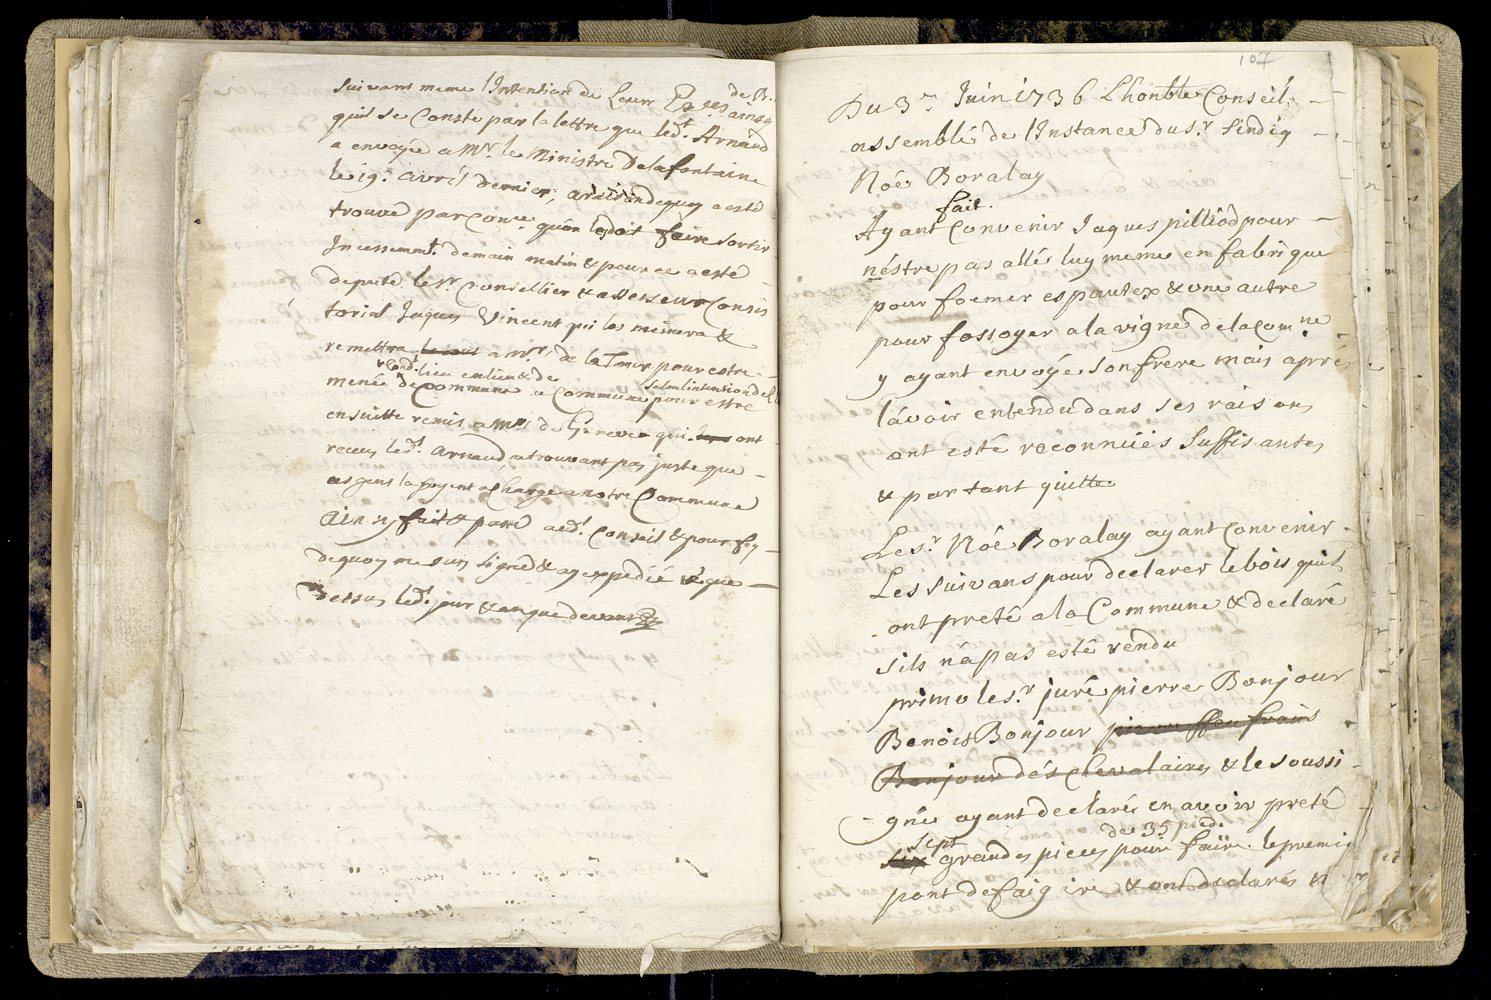 suivant meme l'Intention de Leurs Ex.ces de B.
quil se Conste par la lettre que led.t Arnaud
a envoyée a Mr. le Ministre Delafontaine
le 19.e avril dernier,
trouvé par Con.. quon les doit faire sortir
Incessemm.t demain matin & pour ce a esté
deputé le Sr Conseillier & assesseur Consis
torial Jaques Vincent qui les meinera &
remettra a Mr. de la Tour pour estre
menée de Commune a Commune pour estre
ensuitte remis a Mrs de Geneve qui ont
receu led.t Arnaud, ne trouvant pas juste que
ces gens la soyent a Charge a notre Commune
Ainsy fait & passé aud.t Conseil & pour foy
dequoy me suis signé & ay expedié que
dessus led.t jour & an que devant
107
Du 3.e Juin 1736 L'honble Conseil
assemblé de l'Instance du s.r Sindiq
Noé Boralay
fait
Ayant Convenir Jaques pilliod pour
néstre pas allé luy meme en fabrique
pour foemer espautex & une autre
pour fossoyer a la vigne de la Com.ne
y ayant envoyé son frere mais aprés
lávoir entendu dans ses raisons
ont esté reconnües suffisantes
& partant quitte
Le s.r Noé Boralay ayant Convenir
Les suivans pour declarer le bois quil
ont preté a la Commune & declaré
sils nápas esté vendu
primo le s.r juré pierre Bonjour
Benois Bonjour
Bonjour dés Chevalaires & le soussi
gnée ayant declarés en avoir preté
sept de 35 pied.
six grandes pieces pour faire le premie
pont defaigire & ont declarés